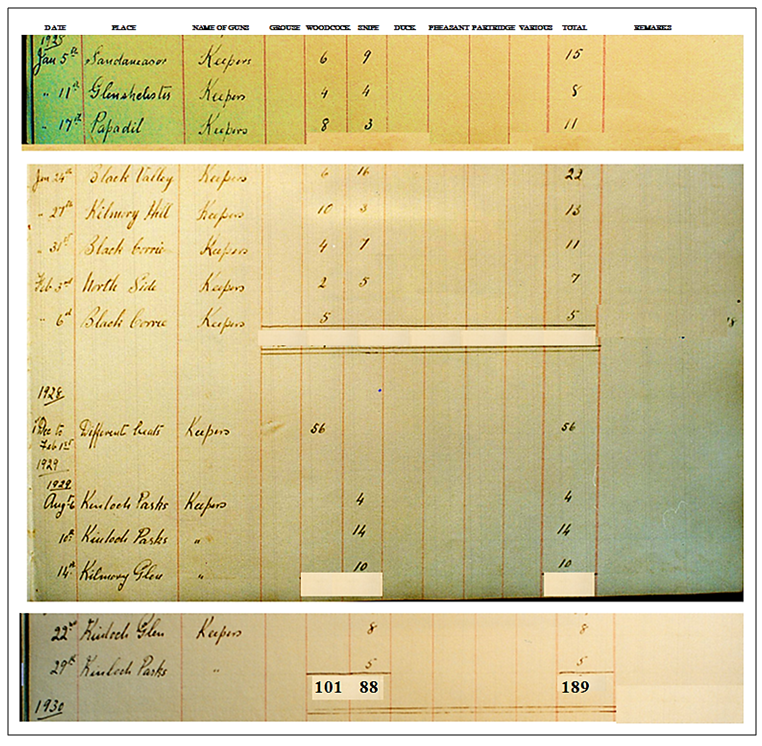 DATE PLACE NAME OF GUNS GROUSE WOODCOCK SNIPE DUCK PHEASANT PARTRIDGE VARIOUS TOTAL REMARKS
Jan 5th Keepers 6 9 15
" 11th Keepers 4 4 8
" 17th Papadil Keepers 8 3 11
Jan 24th Black Valley Keepers 6 16 22
" 27th Kilmory Hill Keepers 10 3 13
" 31st Black Corrie Keepers 4 7 11
Feb 3rd North Side Keepers 2 5 7
" 6th Black Corrie Keepers 5 5
1928
Dec to Different beats Keepers 56 56
Feb 1st
1929
1929
Aug 6 Kinloch Parks Keepers 4 4
10th Kinloch Parks " 14 14
14th Kilmory Glen " 10 10
22nd Kinloch Glen Keepers 8 8
29th Kinloch Parks " 5 5
101 88 189
1930